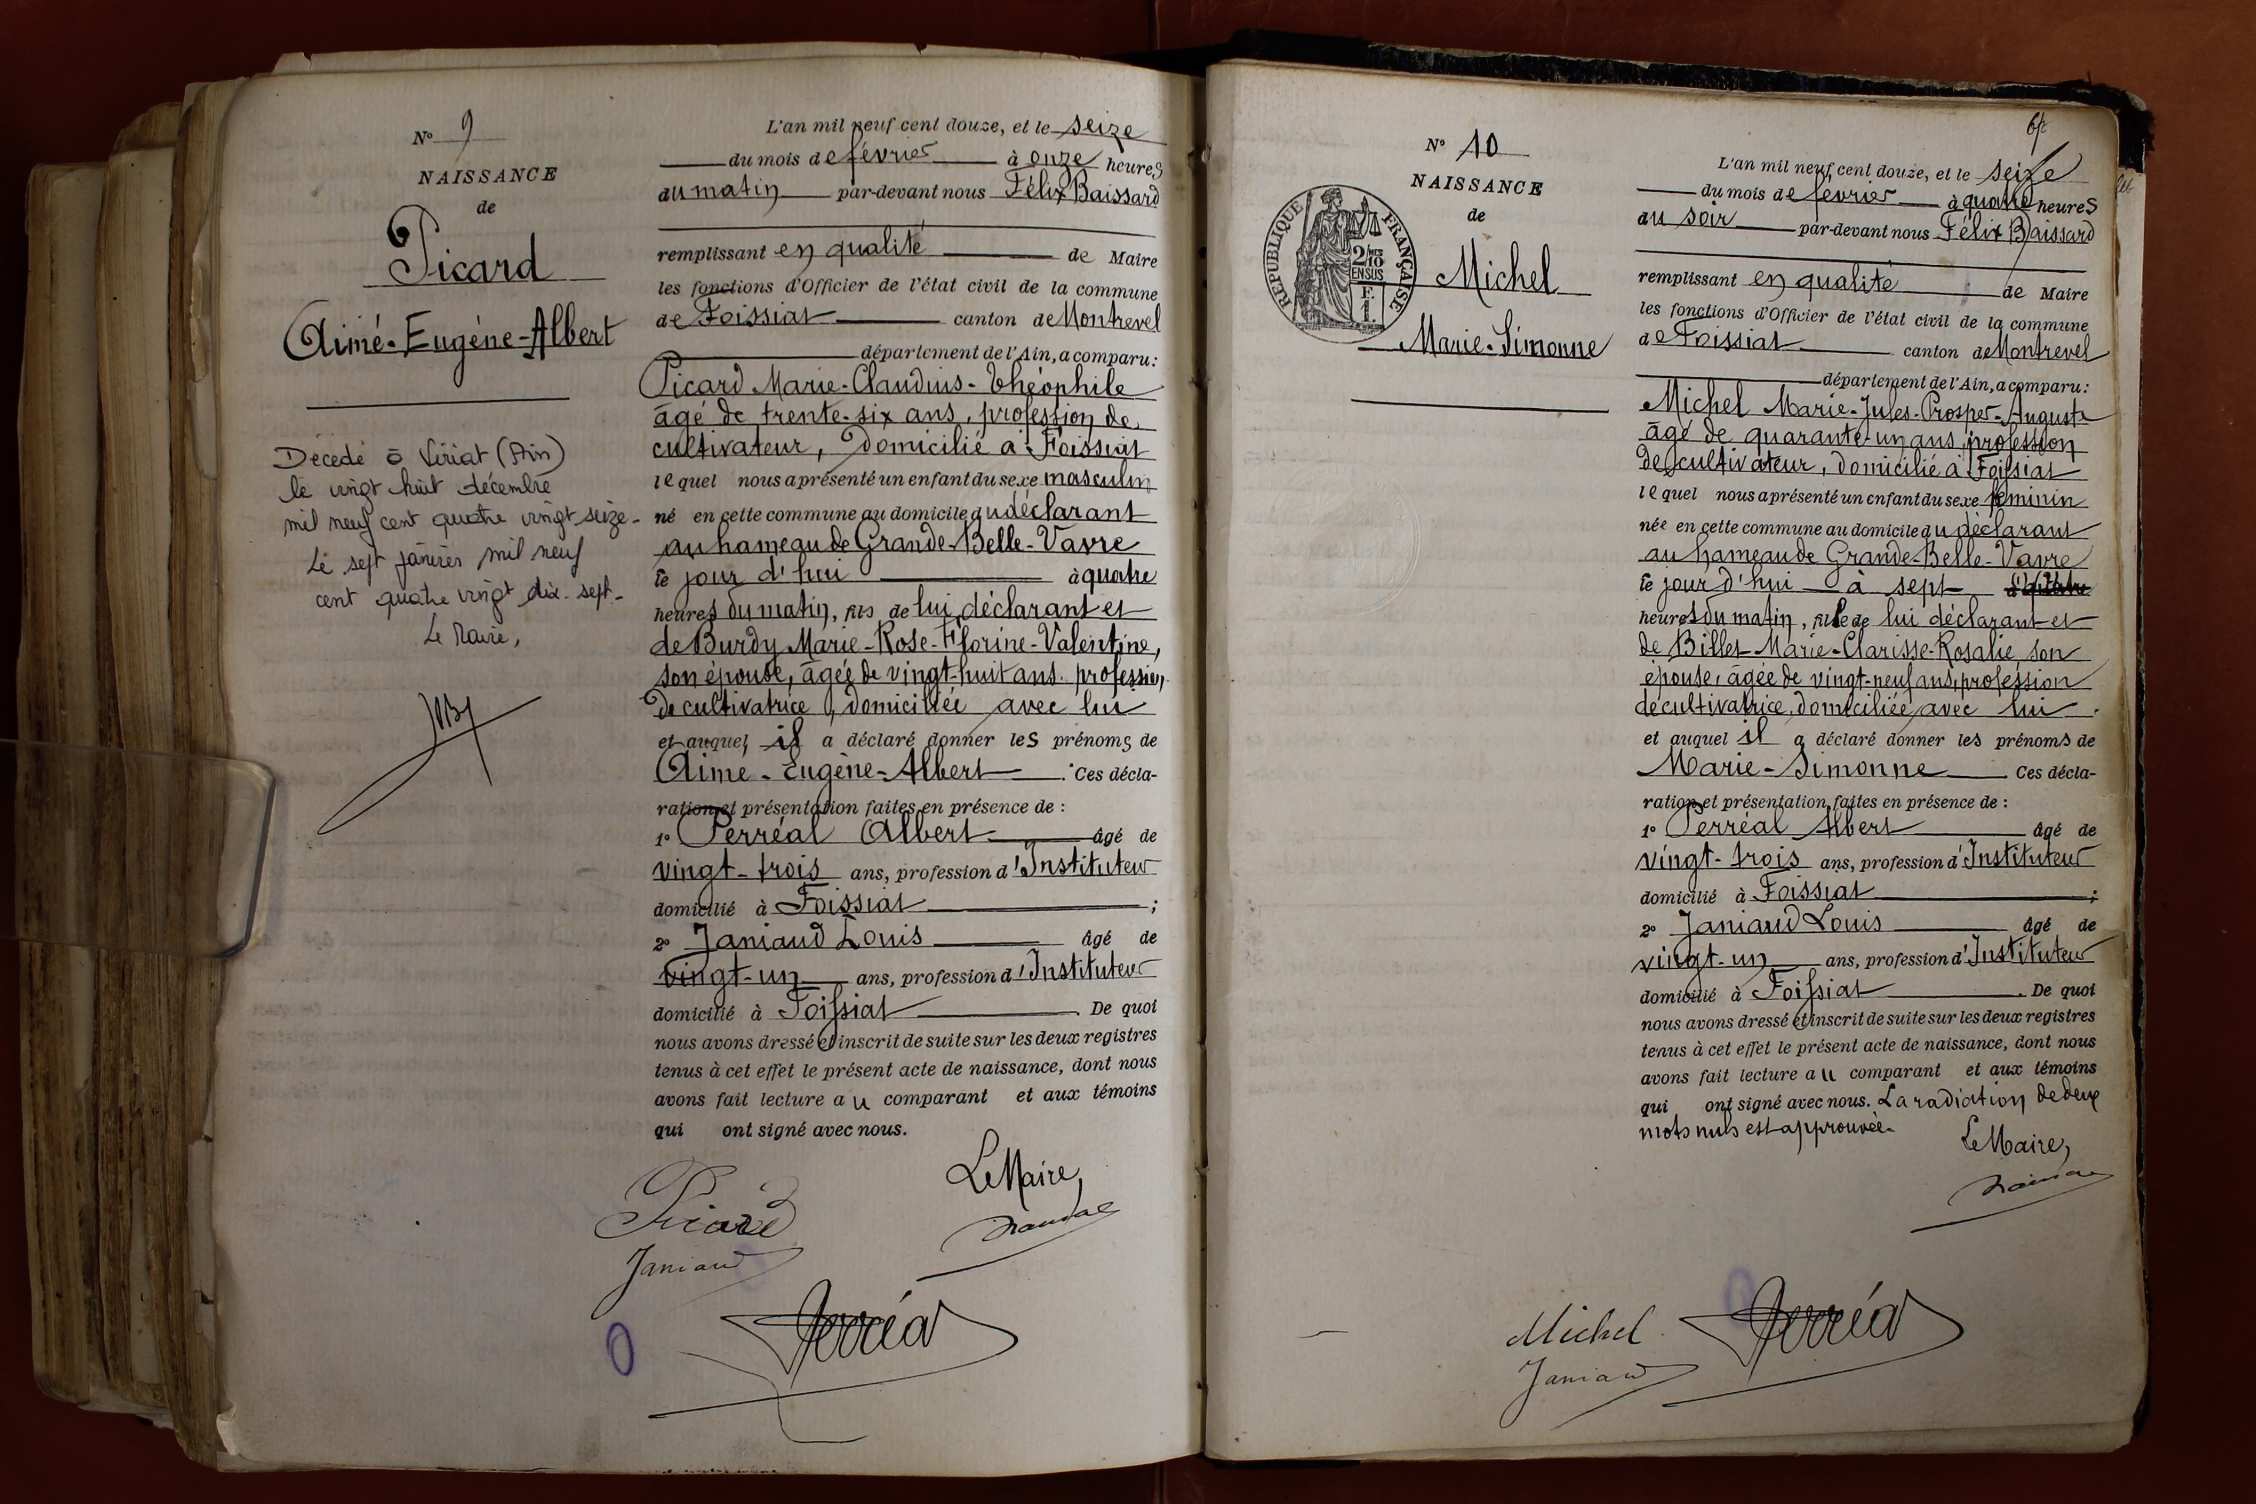 N° 9
NAISSANCE
de
Picard
Aimé-Eugène-Albert
Décédé à Viriat (Ain)
le vingt huit décembre
mil neuf cent quatre vingt seize.
Le sept janvier mil neuf
cent quatre vingt dix-sept.
Le Maire,
L'an mil neuf cent douze, et le seize
du mois de février à onze heures
du matin par-devant nous Félix Baissard
remplissant en qualité de Maire
les fonctions d'Officier de l'état civil de la commune
de Foissiat canton de Montrevel
département de l'Ain, a comparu:
Picard Marie-Claudius-Théophile
âgé de trente-six ans, profession de
cultivateur, domicilié à Foissiat
lequel nous a présenté un enfant du sexe masculin
né en cette commune au domicile du déclarant
au hameau de Grande-Belle-Vavre
ce jour d'hui à quatre
heures du matin, fils de lui déclarant et
de Burdy Marie-Rose-Florine-Valentine,
son épouse, âgée de vingt-huit ans, profession
de cultivatrice, domiciliée avec lui
et auquel il a déclaré donner les prénoms de
Aimé-Eugène-Albert. Ces décla-
ration et présentation faites en présence de :
1° Perréal Albert âgé de
vingt-trois ans, profession d'Instituteur
domicilié à Foissiat ;
2° Janiaud Louis âgé de
vingt-un ans, profession d'Instituteur
domicilié à Foissiat. De quoi
nous avons dressé et inscrit de suite sur les deux registres
tenus à cet effet le présent acte de naissance, dont nous
avons fait lecture au comparant et aux témoins
qui ont signé avec nous.
Le Maire,
Picard
Janiaud
Perréal
N° 10
NAISSANCE
de
RÉPUBLIQUE FRANÇAISE
2/10
EN SUS
Michel
Marie-Simonne
L'an mil neuf cent douze, et le seize
du mois de février à quatre heures
du soir par-devant nous Félix Baissard
remplissant en qualité de Maire
les fonctions d'Officier de l'état civil de la commune
de Foissiat canton de Montrevel
département de l'Ain, a comparu:
Michel Marie-Jules-Prosper-Auguste
âgé de quarante-un ans, profession
de cultivateur, domicilié à Foissiat
lequel nous a présenté un enfant du sexe féminin
née en cette commune au domicile du déclarant
au hameau de Grande-Belle-Vavre
ce jour d'hui à sept
heures du matin, fille de lui déclarant et
de Billet Marie-Clarisse-Rosalie son
épouse, âgée de vingt-neuf ans, profession
de cultivatrice, domiciliée avec lui.
et auquel il a déclaré donner les prénoms de
Marie-Simonne Ces décla-
ration et présentation faites en présence de :
1° Perréal Albert âgé de
vingt-trois ans, profession d'Instituteur
domicilié à Foissiat ;
2° Janiaud Louis âgé de
vingt-un ans, profession d'Instituteur
domicilié à Foissiat. De quoi
nous avons dressé et inscrit de suite sur les deux registres
tenus à cet effet le présent acte de naissance, dont nous
avons fait lecture au comparant et aux témoins
qui ont signé avec nous. La radiation de deux
mots nuls est approuvée.
Le Maire,
Michel
Janiaud
Perréal